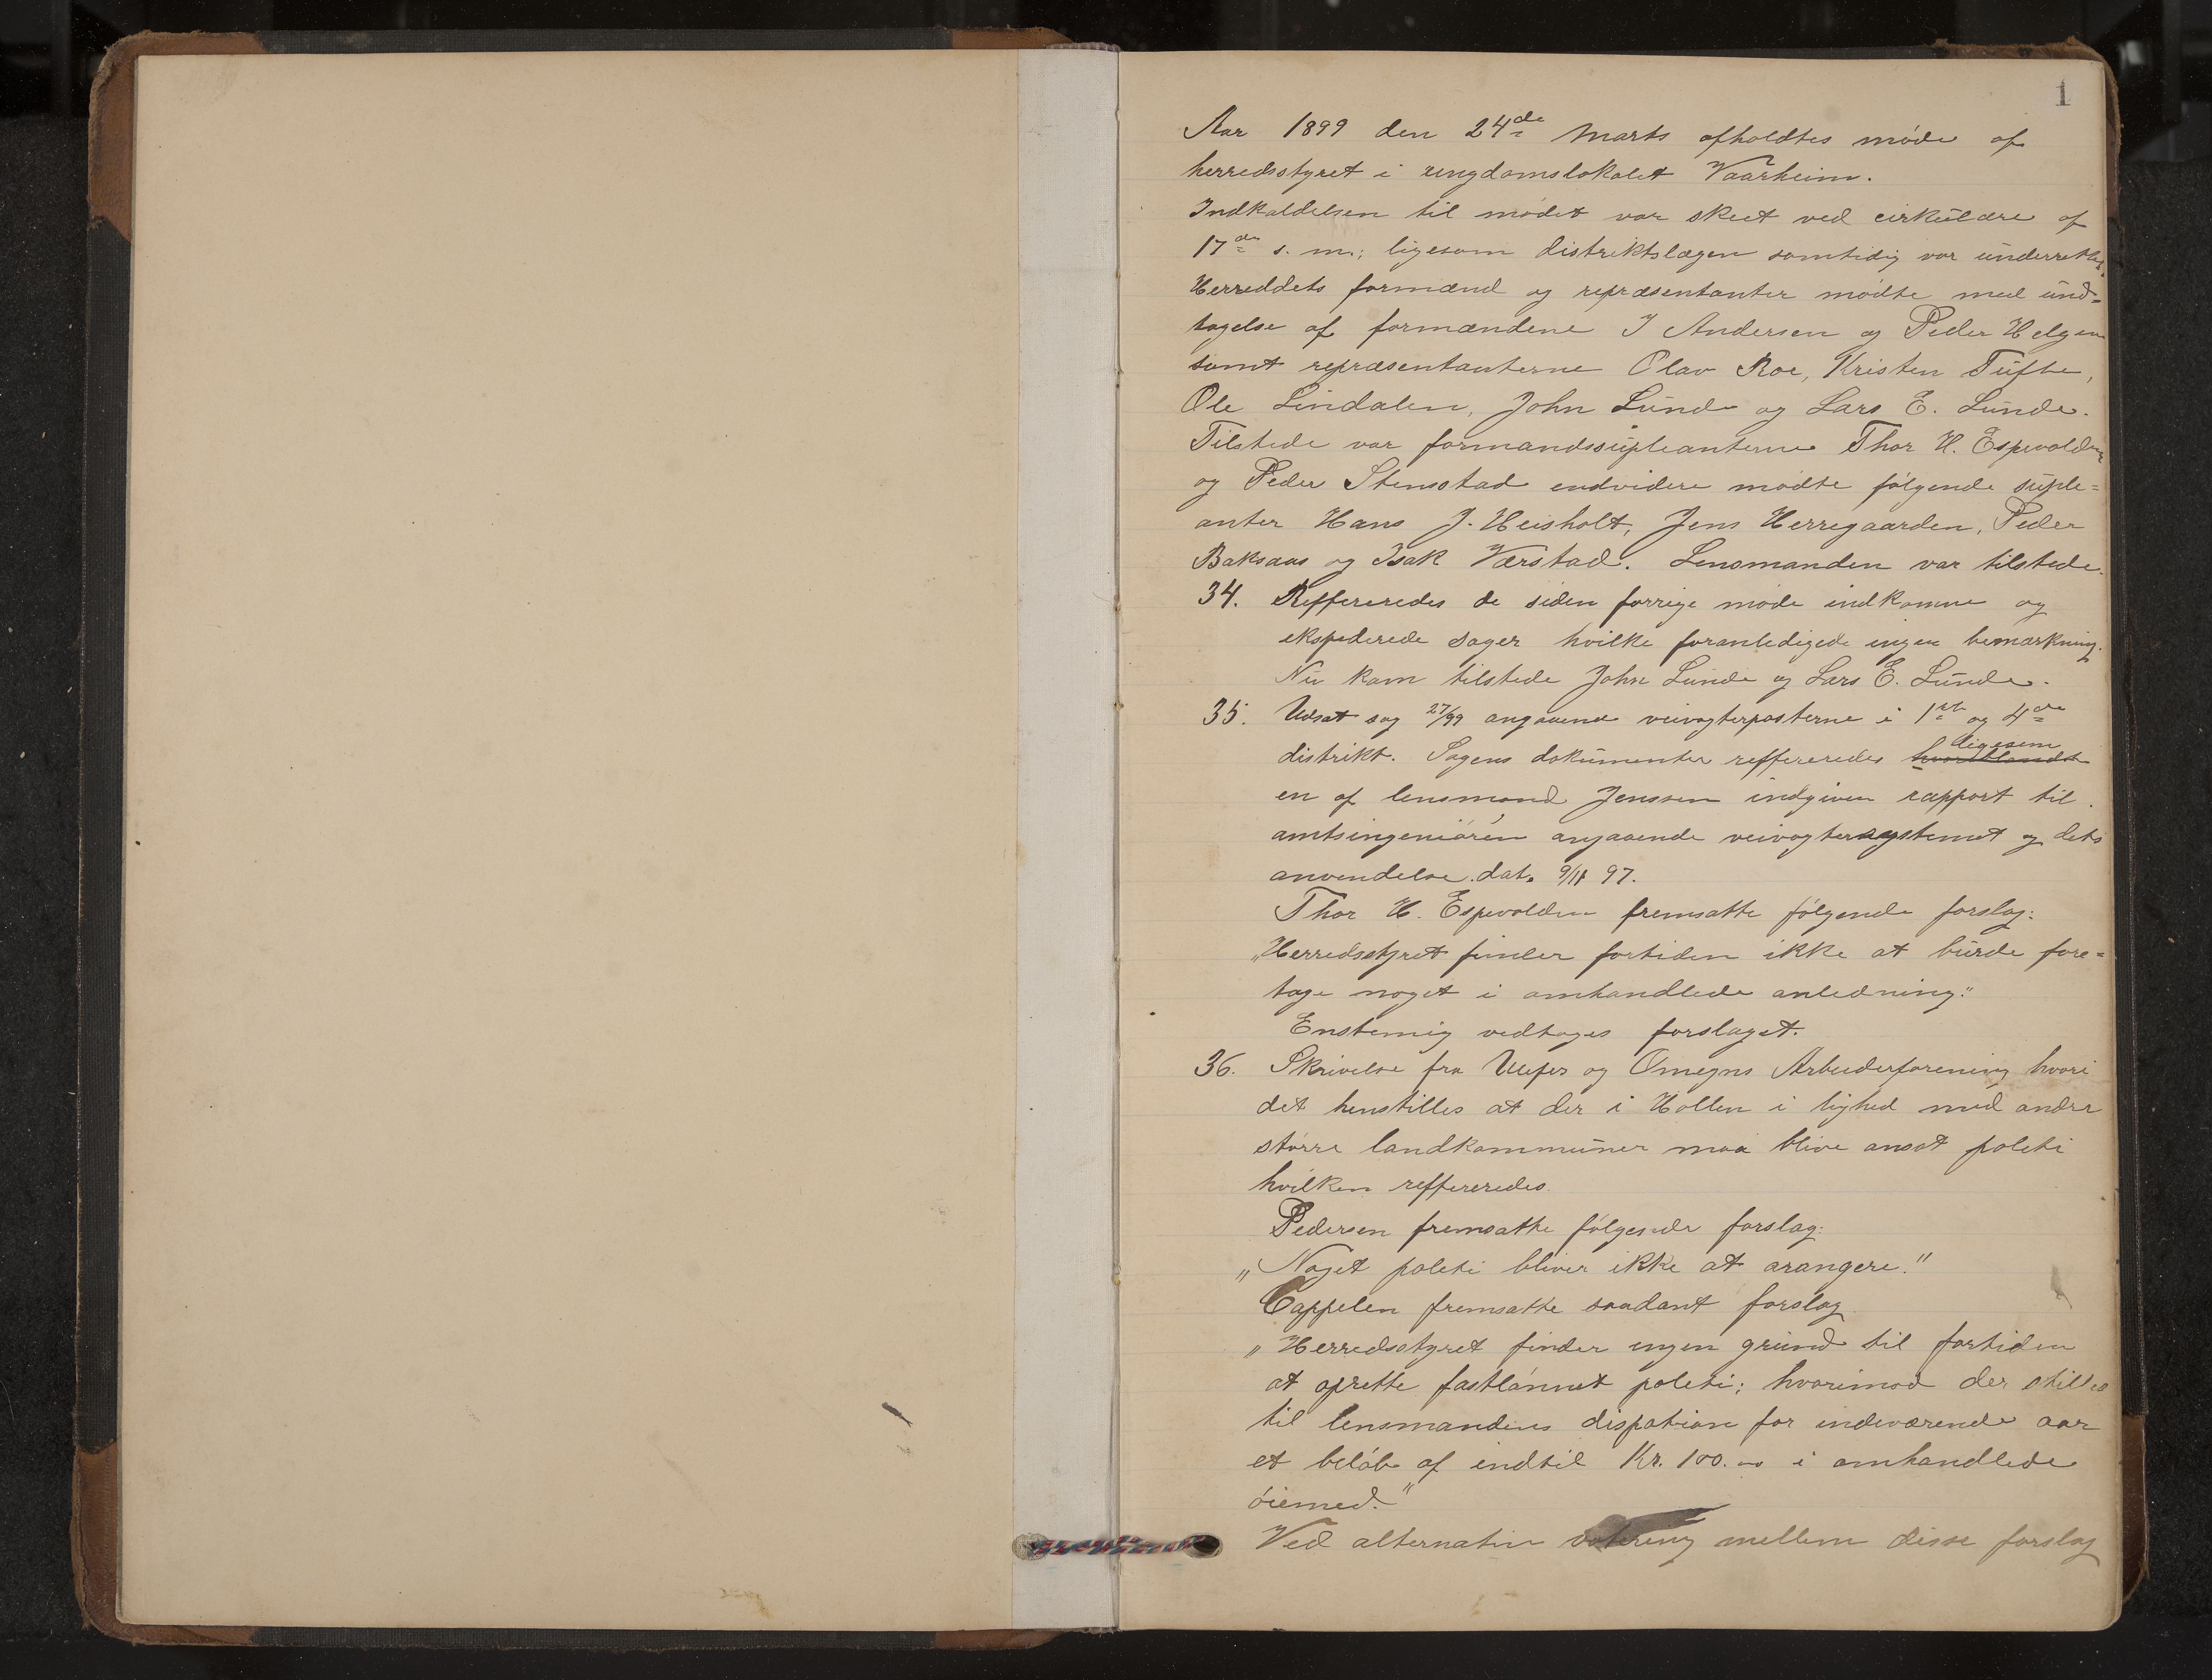 1
Aar 1899 den 24de Marts afholdtes møde af
herredsstyret i ungdomslokalet Vaarheim.
Indkaldelsen til mødet var skeet ved cirkulære af
17de s. m.; ligesom distriktslægen samtidig var underrettet.
Herreddets formænd og repræsentanter mødte med und-
tagelse af formændene I Andersen og Peder Helgen
samt repræsentanterne Olav Roe, Kristen Tufte,
Ole Lindalen, John Lunde og Lars E. Lunde.
Tilstede var formandssupleanterne Thor H. Espevolden
og Peder Stensstad endvidere mødte følgende suple-
anter Hans J. Heisholt, Jens Herregaarden, Peder
Baksaas og Isak Værstad. Lensmanden var tilstede.
34. Reffereredes de siden forrige møde indkomne og
ekspederede sager hvilke foranledigede ingen bemærkning.
Nu kom tilstede John Lunde og Lars E. Lunde.
35. Udsat sag 27/99 angaaende veivogterposterne i 1ste og 4de
distrikt. Sagens dokumenter reffereredes hvoriblandt ligesom
en af lensmand Jenssen indgiven rapport til
amtsingeniøren angaaende veivogtersystemet og dets
anvendelse. dat. 9/11 97.
Thor H. Espevolden fremsatte følgende forslag:
„Herredsstyret finder fortiden ikke at burde fore-
tage noget i omhandlede anledning."
Enstemig vedtoges forslaget.
36. Skrivelse fra Ulefos og Omegns Arbeiderforening hvori
det henstilles at der i Hollen i lighed med andre
større landkommuner maa blive ansat politi
hvilken reffereredes.
Pedersen fremsatte følgende forslag:
„Noget politi bliver ikke at arangere."
Cappelen fremsatte saadant forslag
„Herredsstyret finder ingen grund til fortiden
at oprette fastlønnet politi; hvorimod der stilles
til lensmandens dispotion for indeværende aar
et beløb af indtil Kr. 100.00 i omhandlede
øiemed."
Ved alternativ votering mellem disse forslag